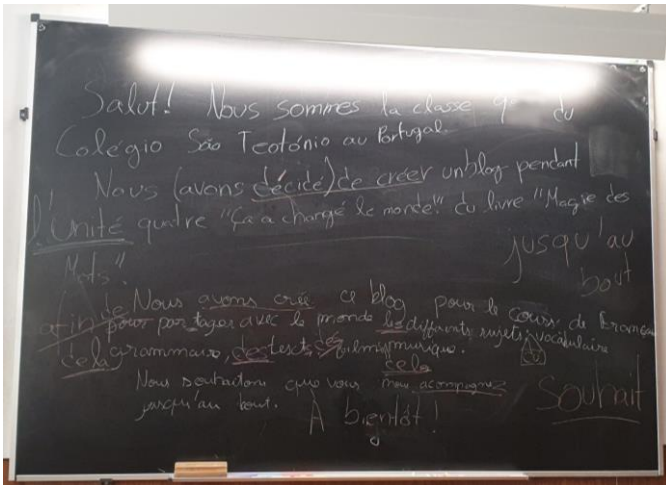 Salut! Nous sommes la classe 9º du
Colégio São Teotónio au Portugal.
Nous (avons décidé) de créer un blog pendant
l'Unité quatre "Ça a changé le monde!" du livre "Magie des
Mots".
jusqu'au
bout
de Nous avons crée ce blog pour le cours de Français
afin pour partager avec le monde les différents sujets: vocabulaire
de la grammaire, des texts, des films, musique.
de la
Nous souhaitons que vous nous acompagnez
jusqu'au bout.
À bientôt!
Souhait